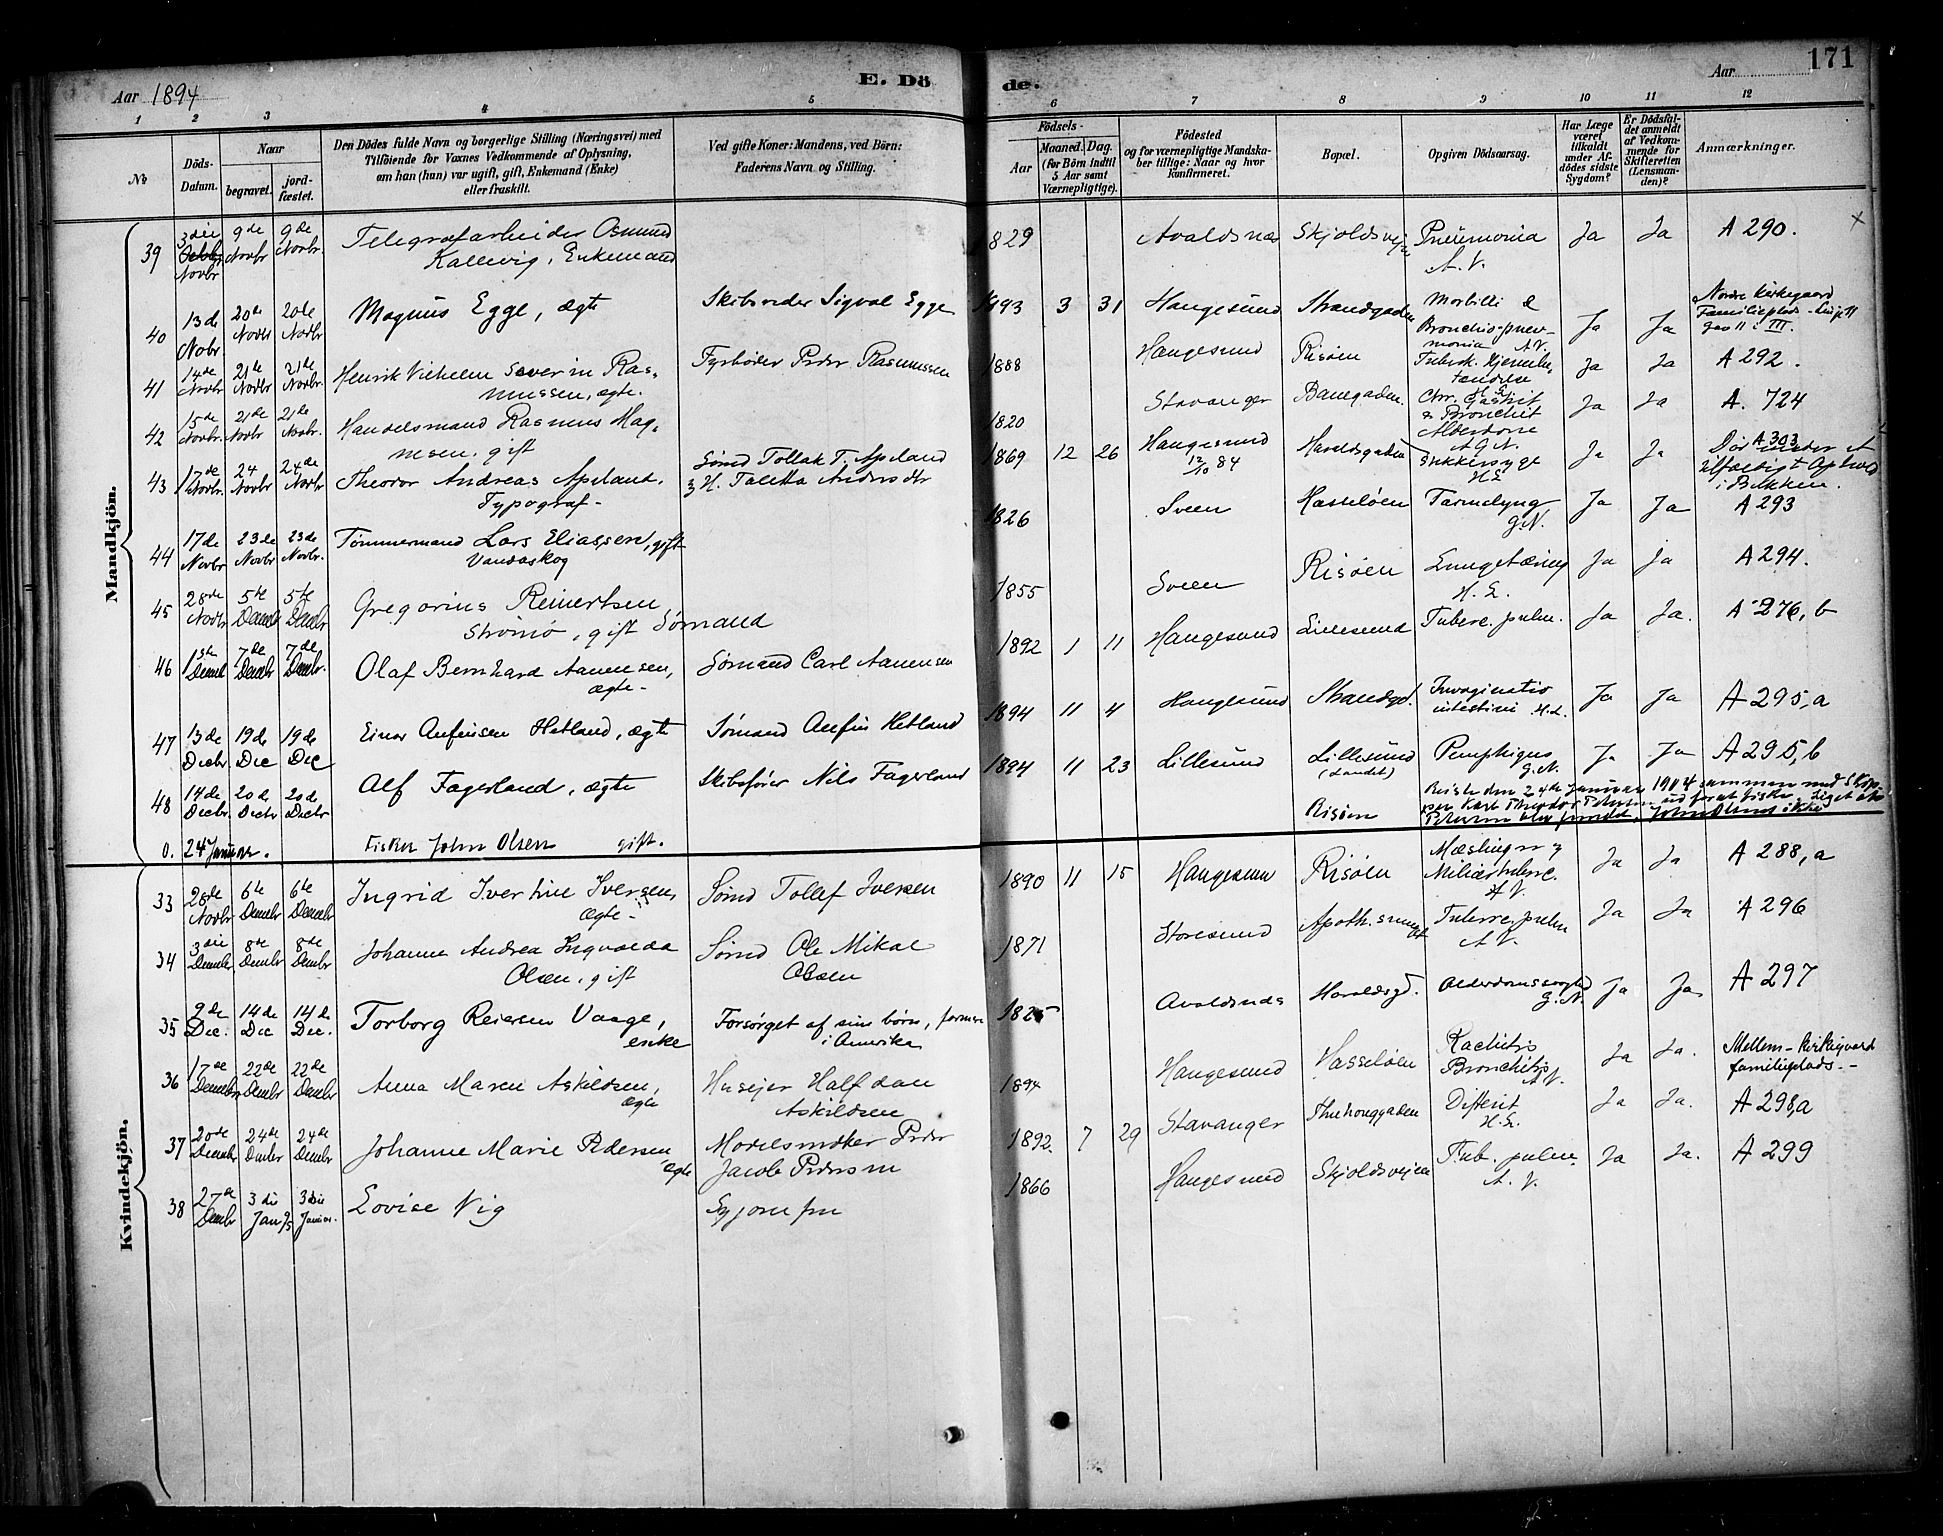 171
Aar 1894
E. Dö
de.
Aar
1 2 3 4 5 6 7 8 9 10 11 12
No
Döds-
Datum.
Naar
begravet.
jord-
fæstet.
Den Dödes fulde Navn og borgerlige Stilling (Næringsvei) med
Tilföiende for Voxnes Vedkommende af Oplysning,
om han (hun) var ugift, gift, Enkemand (Enke)
eller fraskilt.
Ved gifte Koner: Mandens, ved Börn:
Faderens Navn og Stilling.
Födsels-
Aar
Maaned. Dag.
(for Börn indtil
5 Aar samt
Værnepligtige).
Födested
og for værnepligtige Mandska-
ber tillige: Naar og hvor
konfirmeret.
Bopæl.
Opgiven Dödsaarsag.
Har Læge
været
tilkaldt
under Af-
dödes sidste
Sygdom?
Er Dödsfal-
det anmeldt
af Vedkom-
mende for
Skifteretten
(Lensman-
den)?
Anmærkninger.
Mandkjön.
39 3die Novbr 9de Novbr 9de Novbr. Telegrafarbeider Osmund 1829 Avaldsnes Skjoldsvejen Pneumonia Ja Ja A 290. x
Kallevig, Enkemand A. V.
40 13de Nobr 20de Novbr 20de Novbr Magnus Egge, ægte Skibsreder Sigval Egge 1893 3 31 Haugesund Strandgaden Morbilli & Ja Ja Nordre Kirkegaard
Bronchio-pneu- Familieplads
monia A.V. III.
41 14de Novbr 21de Novbr 21de Novbr. Henrik Vilhelm Severin Ras- Fyrbøder Peder Rasmussen 1888 Haugesund Risøen Tuberk. Hjernebe- Ja Ja A 292.
mussen, ægte. tændelse
H. E.
42 15de Novbr. 21de Novbr 21de Novbr. Handelsmand Rasmus Mag- 1820 Stavanger Banegaden. Chr. Gastrit Ja Ja A. 724
nesen. gift & Bronchit
43 17de Novbr. 24 Novbr 24de Novbr Theodor Andreas Apeland. Sømd Tollak T. Apeland 1869 12 26 Haugesund Haraldsgaden Sukkersyge Ja Ja A 303
Typograf- & H. Taletta Andersdtr 12/10 84 H E
44 17de Novbr 23de Novbr 23de Novbr. Tømmermand Lars Eliassen, gift 1826 Sveen Hasseløen Tarmslyng Ja Ja A 293
Vandaskog G.N.
45 28de Novbr 5te Decmbr 5te Decmbr Gregorius Reinertsen 1855 Sveen Risøen Lungetæring Ja Ja A 294.
Strømø, gift Sømand H. E.
46 1ste Decmbr 7de Decmbr 7de Decmbr. Olaf Bernhard Aanensen, Sømand Carl Aanensen 1892 1 11 Haugesund Lillesund Tuberc. pulm. Ja Ja. A 276, b
ægte-
47 13de Decbr 19de Dec 19de Dec Einar Anfinsen Hetland, ægte Sømand Anfin Hetland 1894 11 4 Haugesund Strandgd. Invaginatio Ja Ja A 295,a
intestini H.E.
48 14de Decbr. 20de Decbr 20de Decbr Alf Fagerland, ægte Skibsfører Nils Fagerland 1894 11 23 Lillesund Lillesund Pemphigus Ja Ja A 295,b
(Landet) G.N.
0. 24 Januar. Fisker John Olsen gift. Risøen Reiste den 24de Januar 1904 sammen med Skip-
per Karl Theodor Petersen ud for at fiske. Liget af
Petersen blev fundet, John Olsens ikke
Kvindekjön.
33 28de Novbr 6te Decmbr 6te Decmbr Ingrid Ivertine Iversen, Sømd Tollef Iversen 1890 11 15 Haugesund Risøen Mæslinger & Ja Ja A 288,a
ægte- Miliærtuberc.
A V.
34 3die Decmbr 8de Decmbr 8de Decmbr Johanne Andrea Ingvalda Sømd Ole Mikal 1871 Storesund Tuberc. pulm Ja Ja A 296
Olsen, gift Olsen A V.
35 9de Dec. 14de Dec 14de Dec. Torborg Reiersen Vaage, Forsørget af sine børn, 1825 Avaldsnes Haraldsgd. Alderdomssvaghed Ja Ja A 297
enke i Amerika G. N.
36 17de Decmbr 22de Decmbr 22de Decmbr Anna Maren Askildsen, Husejer Halfdan 1894 Haugesund Hasseløen Rachitis Ja Ja. Mellem-kirkegaard
ægte Askildsen Bronchitis familieplads.-
A.V.
37 20de Decmbr 24de Decmbr 24de Decmbr Johanne Marie Pedersen Modelsnidker Peder 1892. 7 29 Stavanger Thuhauggaden Difterit Ja Ja. A 298,a
ægte Jacob Pedersen H. E.
38 27de Decmbr 3die Jan 95 3die Januar. Lovise Vig 1866 Haugesund Skjoldsvejen Tub. pulm. Ja Ja. A 299
A. V.